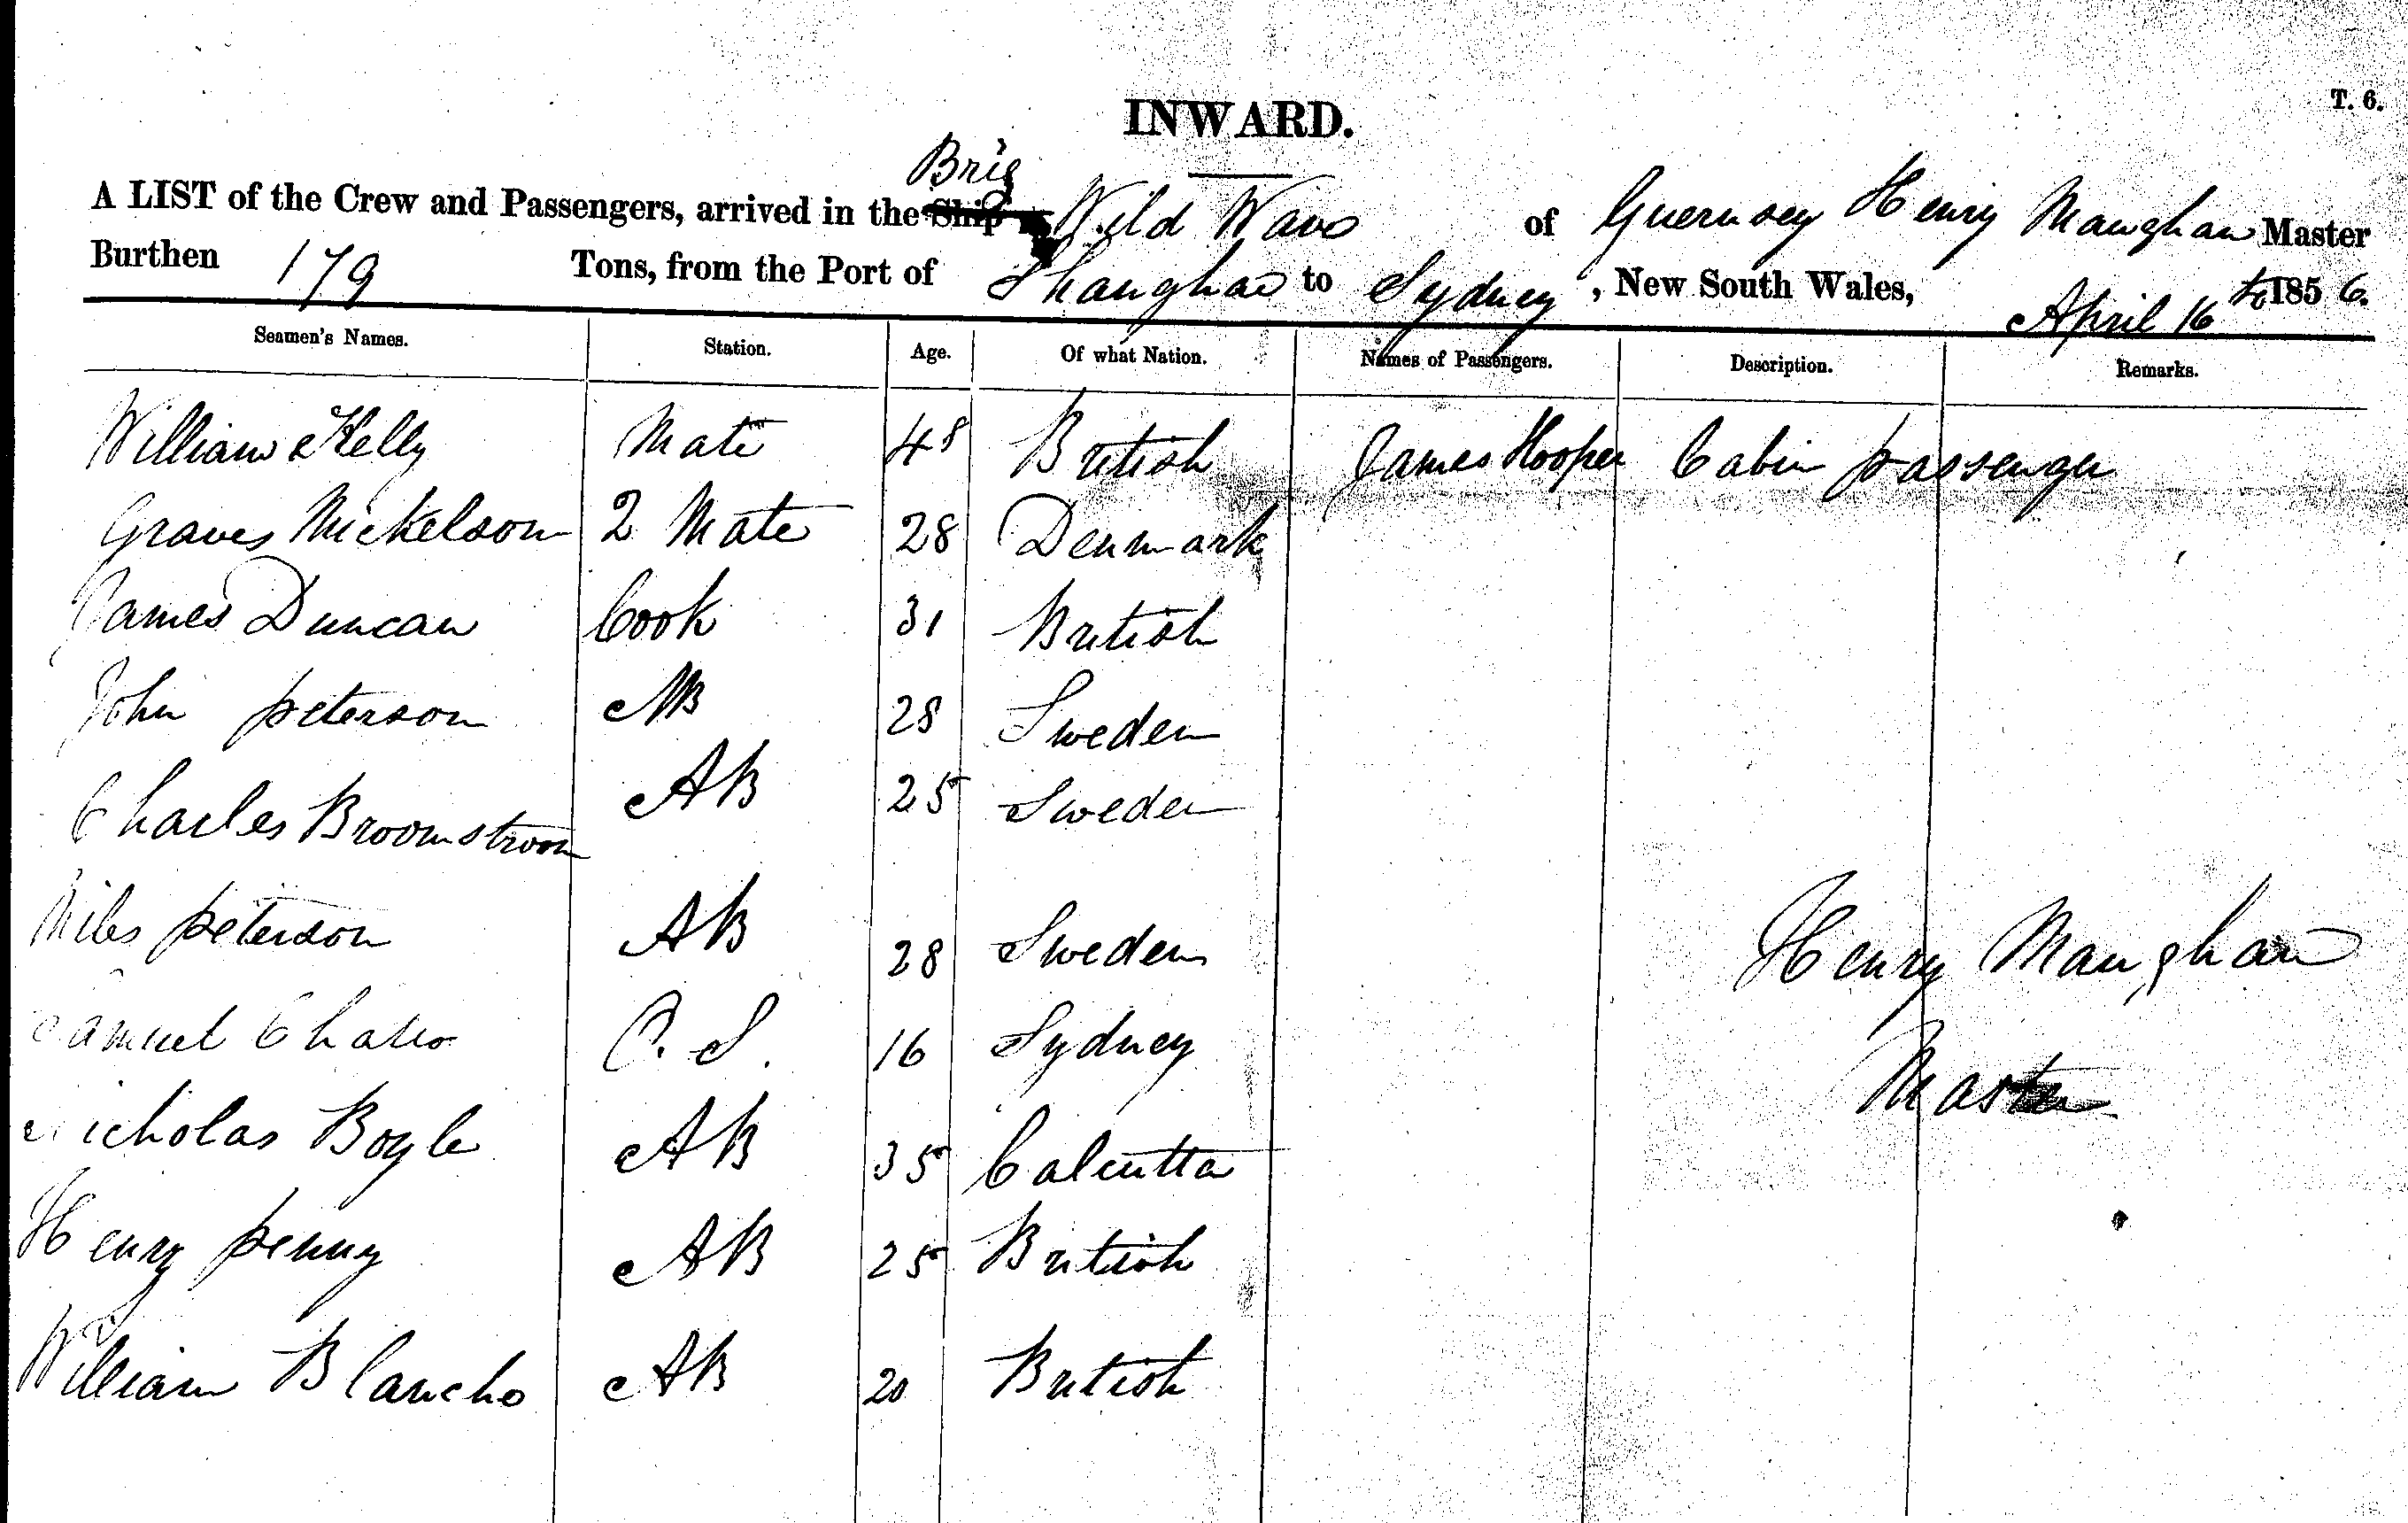 T. 6.
INWARD.
Brig
A LIST of the Crew and Passengers, arrived in the Ship Wild Wave of Guernsey Henry Maughan Master
Burthen 179 Tons, from the Port of Shanghae to Sydney, New South Wales, April 16 th 1856.
Seamen's Names. Station. Age. Of what Nation. Names of Passengers. Description. Remarks.
William Kelly Mate 48 British James Hooper Cabin passenger
Graves Mickelson 2 Mate 28 Denmark
James Duncan Cook 31 British
John peterson AB 28 Sweden
Charles Broomstroom AB 25 Sweden
Niles peterson AB 28 Sweden
Henry Maughan
Samuel O.S. 16 Sydney
Master
Nicholas Boyle AB 35 Calcutta
Henry penny AB 25 British
William Blancho AB 20 British